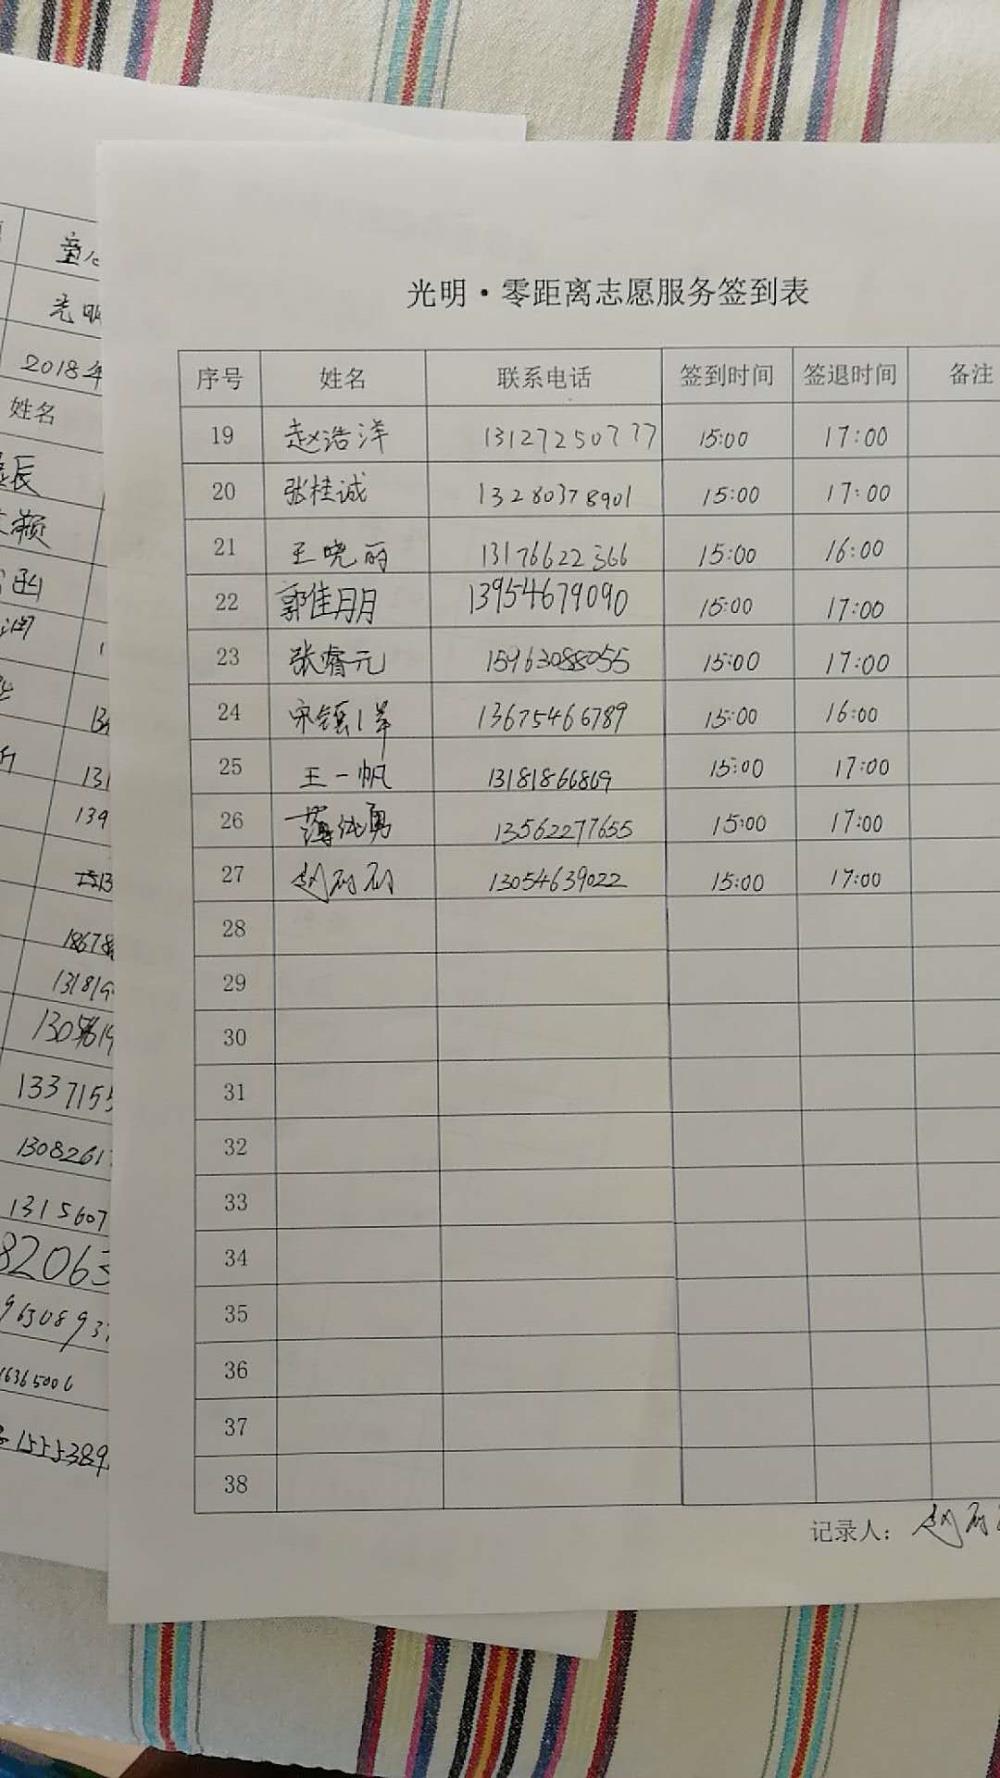 光明·零距离志愿服务签到表
序号 姓名 联系电话 签到时间 签退时间 备注
19 赵浩洋 13127250777 15:00 17:00
20 张桂诚 13280378901 15:00 17:00
21 王晓丽 13176622366 15:00 16:00
22 郭佳月月 13954679090 15:00 17:00
23 张睿元 15963088055 15:00 17:00
24 宋镇 13675466789 15:00 16:00
25 王一帆 13181866869 15:00 17:00
26 13562277655 15:00 17:00
27 赵 13054639022 15:00 17:00
28
29
30
31
32
33
34
35
36
37
38
记录人: 赵
光明
2018年
姓名
辰
颖
函
13
131
139
13
18678
13181
1337155
1308261
1315607
82063
9630893
16365006
1555389